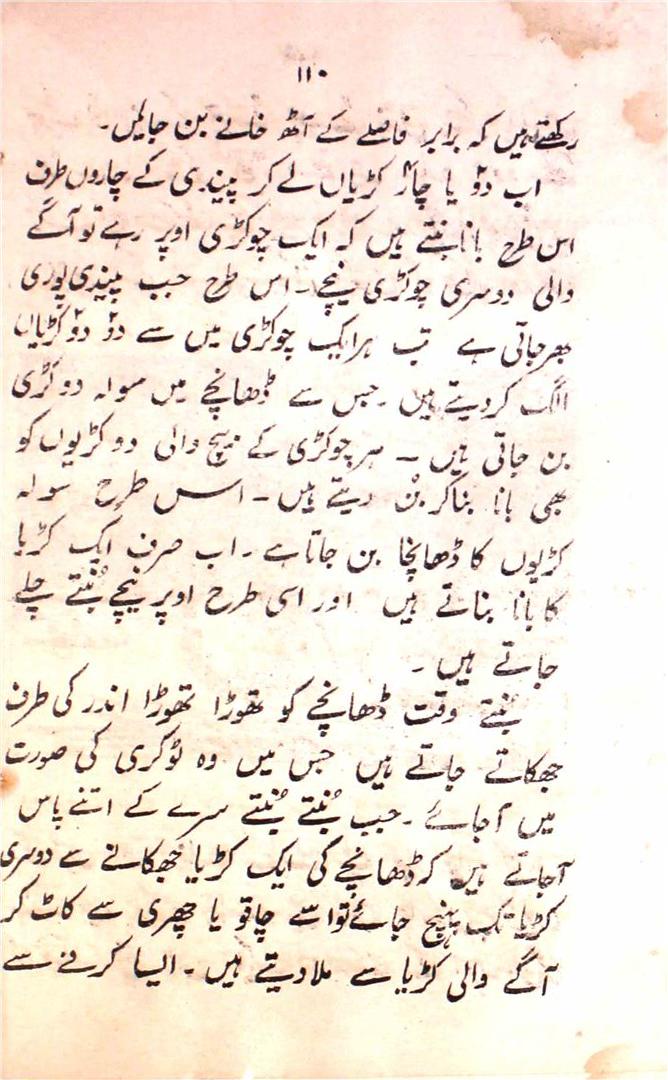 ۱۱۰
رکھتے ہیں کہ برابر فاصلے کے آٹھ خانے بن جائیں۔
اب دو یا چار کڑیاں لے کر پیندی کے چاروں طرف
اس طرح بانا بنتے ہیں کہ ایک چوکڑی اوپر رہے تو آگے
والی دوسری چوکڑی نیچے۔ اس طرح جب پیندی پوری
بھر جاتی ہے تب ہر ایک چوکڑی میں سے دو دو کڑیاں
الگ کر دیتے ہیں۔ جس سے ڈھانچے میں سولہ دو کڑی
بن جاتی ہیں ۔ ہر چوکڑی کے بیچ والی دو کڑیوں کو
بھی بانا بنا کر بُن دیتے ہیں۔ اس طرح سولہ
کڑیوں کا ڈھانچا بن جاتا ہے۔ اب صرف ایک کڑیا
کا بانا بناتے ہیں اور اسی طرح اوپر نیچے بُنتے چلے
جاتے ہیں ۔
بُنتے وقت ڈھانچے کو تھوڑا تھوڑا اندر کی طرف
جھکاتے جاتے ہیں جس میں وہ ٹوکری کی صورت
میں آجائے ۔ جب بُنتے بُنتے سرے کے اتنے پاس
آجاتے ہیں کہ ڈھانچے کی ایک کڑیا جھکانے سے دوسری
کڑیا تک پہنچ جائے تو اسے چاقو یا چھری سے کاٹ کر
آگے والی کڑیا سے ملا دیتے ہیں ۔ ایسا کرنے سے